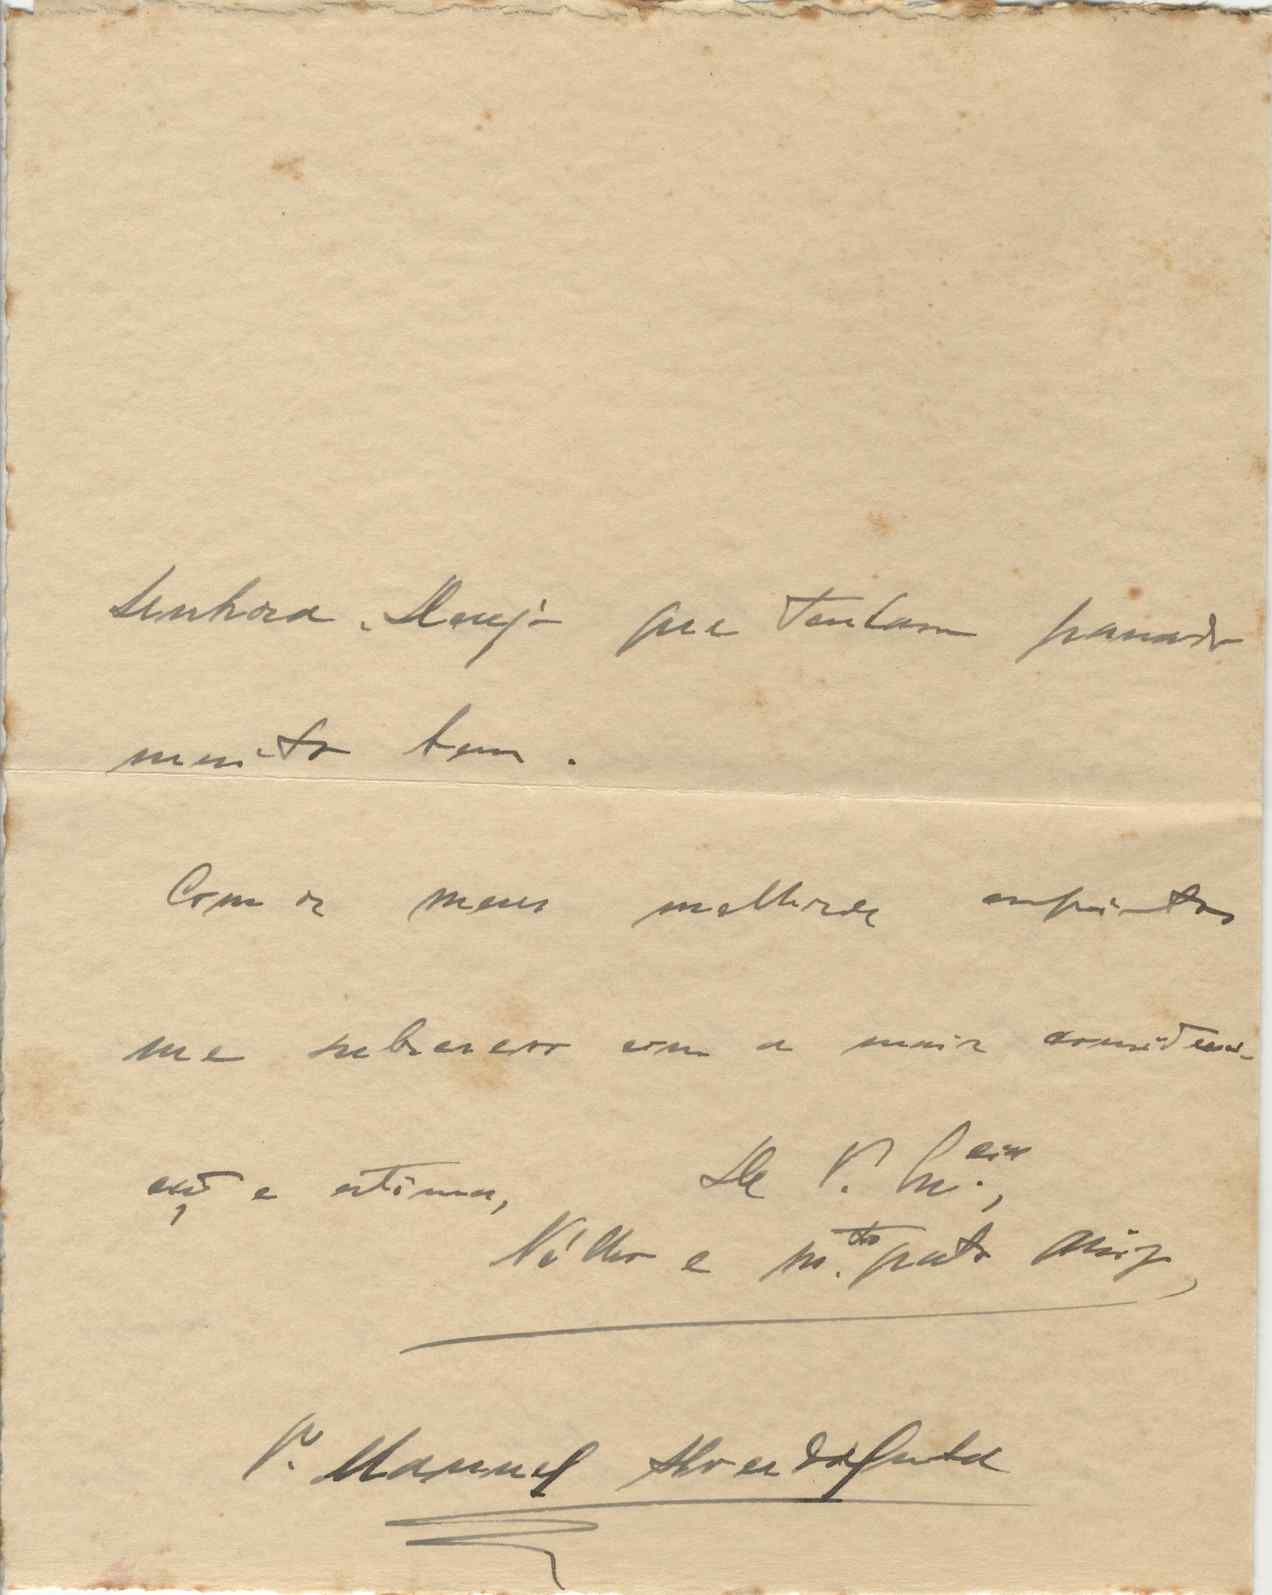 Senhora. Desejo que tenham passado
muito bem.
Com os meus melhores cumprimentos
me subscrevo com a maior considera-
ção e estima, De V. Ex.cia,
Velho e m.to grato Amigo,
P. Manuel